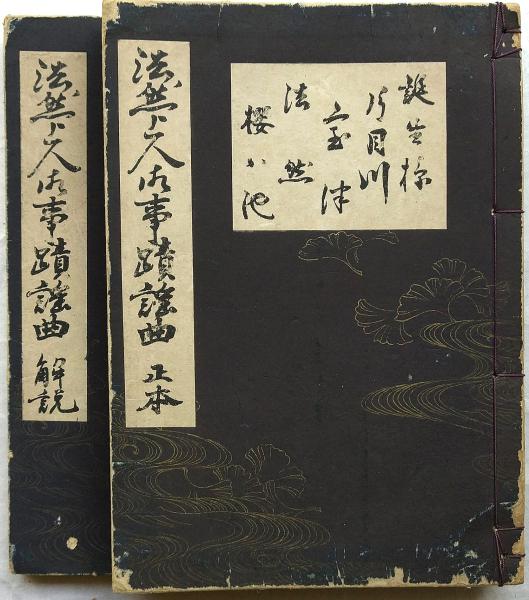 誕生椋
片目川
室津
法然
櫻ヶ池
法然上人御事蹟謡曲 正本
法然上人御事蹟謡曲 解説